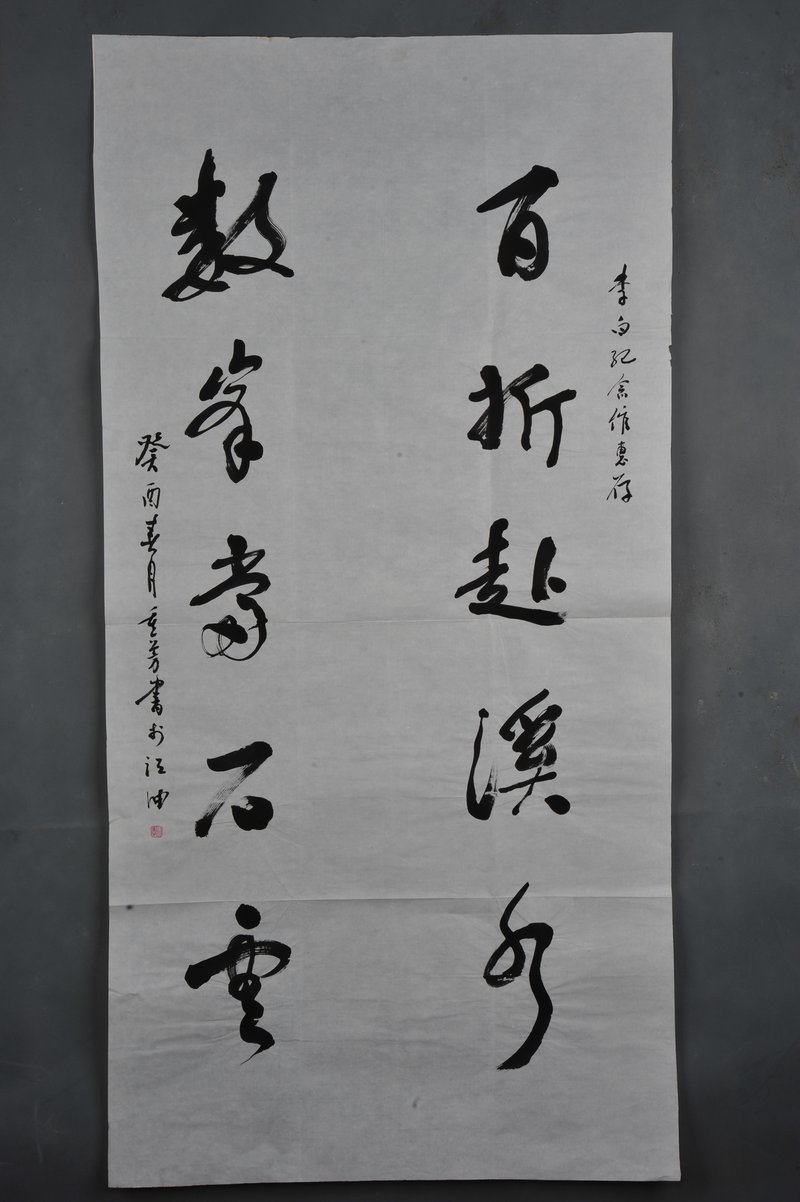 李白纪念馆惠存
百折赴溪水
数峯当石云
癸酉春月
芳书于江油